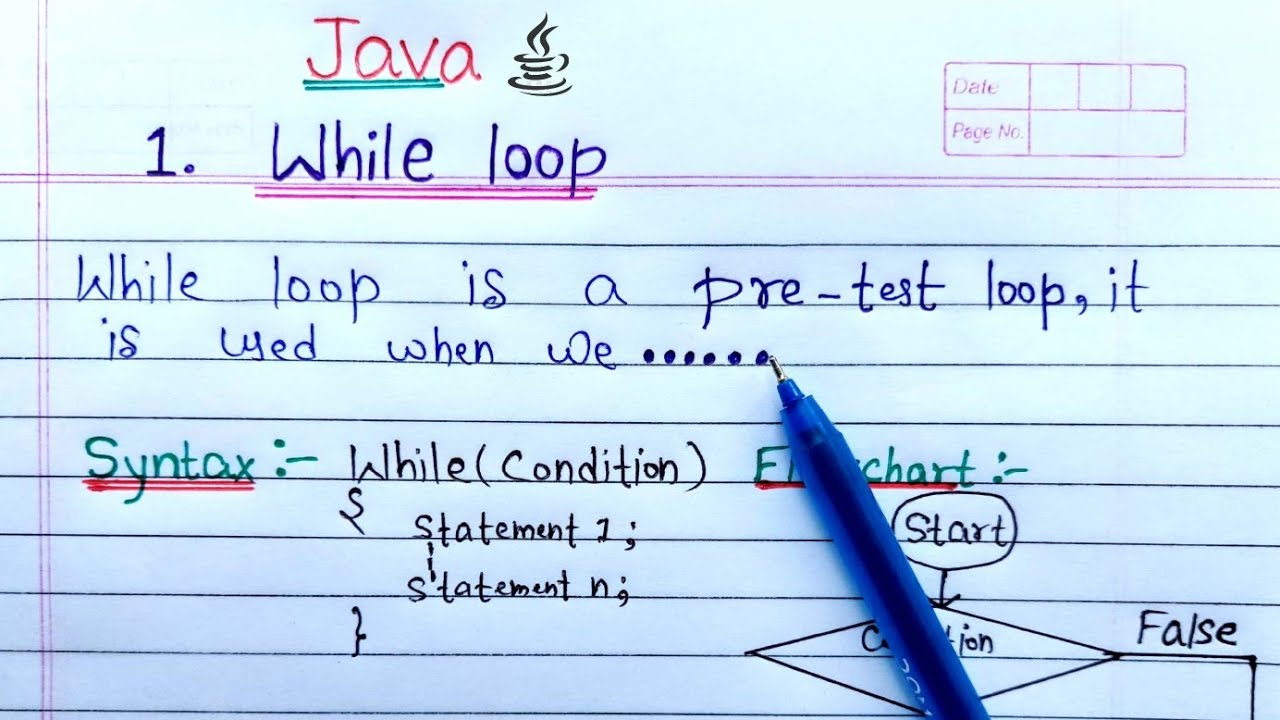 Java
Date
Page No.
1. While loop
While loop is a pre-test loop, it
is used when we ......
Syntax :- While(Condition)
{
Statement 1;
Statement n;
}
:-
Start
False